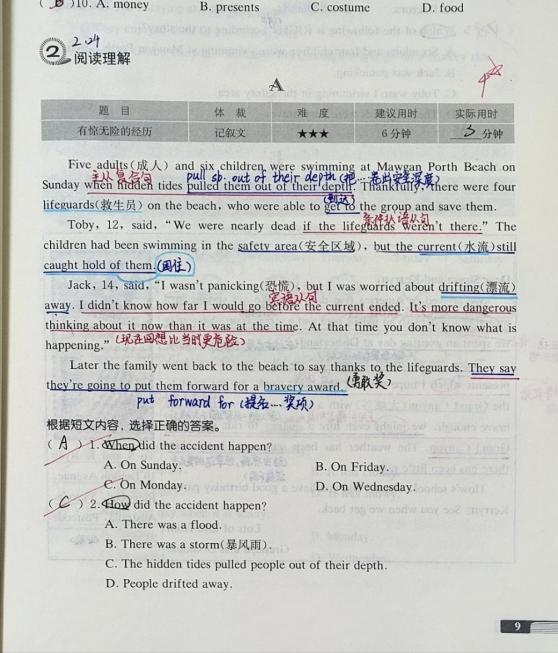 ( B )10. A. money B. presents C. costume D. food
2 2.24
阅读理解
A
题 目 体 裁 难 度 建议用时 实际用时
有惊无险的经历 记叙文 ★★★ 6 分钟 5 分钟
Five adults(成人) and six children were swimming at Mawgan Porth Beach on
主从复合句 pull sb. out of their depth (把…卷出安全深度)
Sunday when hidden tides pulled them out of their depth. Thankfully, there were four
(到达)
lifeguards(救生员) on the beach, who were able to get to the group and save them.
条件状语从句
Toby, 12, said, “We were nearly dead if the lifeguards weren't there.” The
children had been swimming in the safety area(安全区域), but the current(水流)still
caught hold of them.(困住)
Jack, 14, said, “I wasn't panicking(恐慌), but I was worried about drifting(漂流)
宾语从句
away. I didn't know how far I would go before the current ended. It's more dangerous
thinking about it now than it was at the time. At that time you don't know what is
happening.” (现在回想比当时更危险)
Later the family went back to the beach to say thanks to the lifeguards. They say
they're going to put them forward for a bravery award. (勇敢奖)
put forward for (提名…奖项)
根据短文内容，选择正确的答案。
( A ) 1. When did the accident happen?
A. On Sunday. B. On Friday.
C. On Monday. D. On Wednesday.
( C ) 2. How did the accident happen?
A. There was a flood.
B. There was a storm(暴风雨).
C. The hidden tides pulled people out of their depth.
D. People drifted away.
9